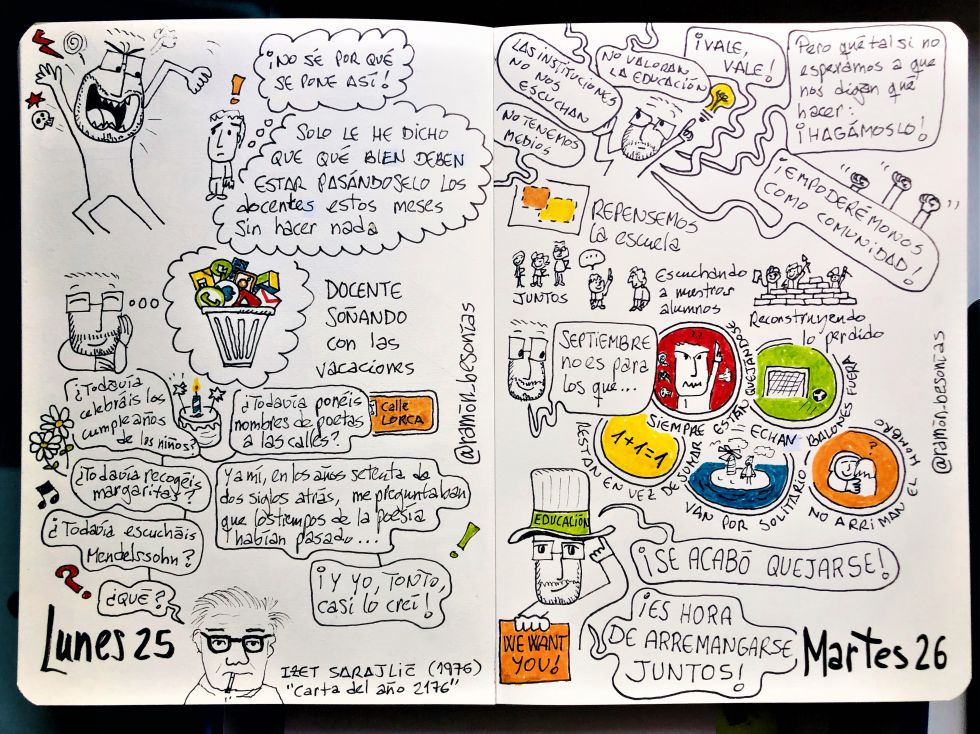 ¡NO SÉ POR QUÉ
SE PONE ASÍ!
SOLO LE HE DICHO
QUE QUÉ BIEN DEBEN
ESTAR PASÁNDOSELO LOS
docentes estos meses
sin hacer nada
DOCENTE
SOÑANDO
con las
vacaciones
@ramón.besonías
¿Todavía
celebráis los
cumpleaños
de los niños?
¿Todavía ponéis
nombres de poetas
a las calles?
Calle
LORCA
¿Todavía recogéis
margaritas?
¿Todavía escucháis
Mendelssohn?
¿QUÉ?
Y a mí, en los años setenta de
dos siglos atrás, me preguntaban
que los tiempos de la poesía
habían pasado...
¡Y YO, TONTO,
casi lo creí!
Lunes 25
IZET SARAJLIĆ (1976)
"Carta del año 2176"
LAS INSTITUCIONES
NO NOS
ESCUCHAN
NO VALORAN
LA EDUCACIÓN
NO TENEMOS
MEDIOS
¡VALE,
VALE!
Pero qué tal si no
esperamos a que
nos digan qué
hacer:
¡HAGÁMOSLO!
¡EMPODERÉMONOS
COMO COMUNIDAD!
REPENSEMOS
La escuela
JUNTOS
Escuchando
a nuestros
alumnos
Reconstruyendo
lo perdido
SEPTIEMBRE
no es para
los que...
SIEMPRE ESTÁN QUEJÁNDOSE
ECHAN BALONES FUERA
1+1=1
RESTAN EN VEZ DE SUMAR
VAN POR SOLITARIO
?
NO ARRIMAN EL HOMBRO
@ramón.besonías
EDUCACIÓN
¡SE ACABÓ QUEJARSE!
WE WANT
YOU!
¡ES HORA
DE ARREMANGARSE
JUNTOS!
Martes 26